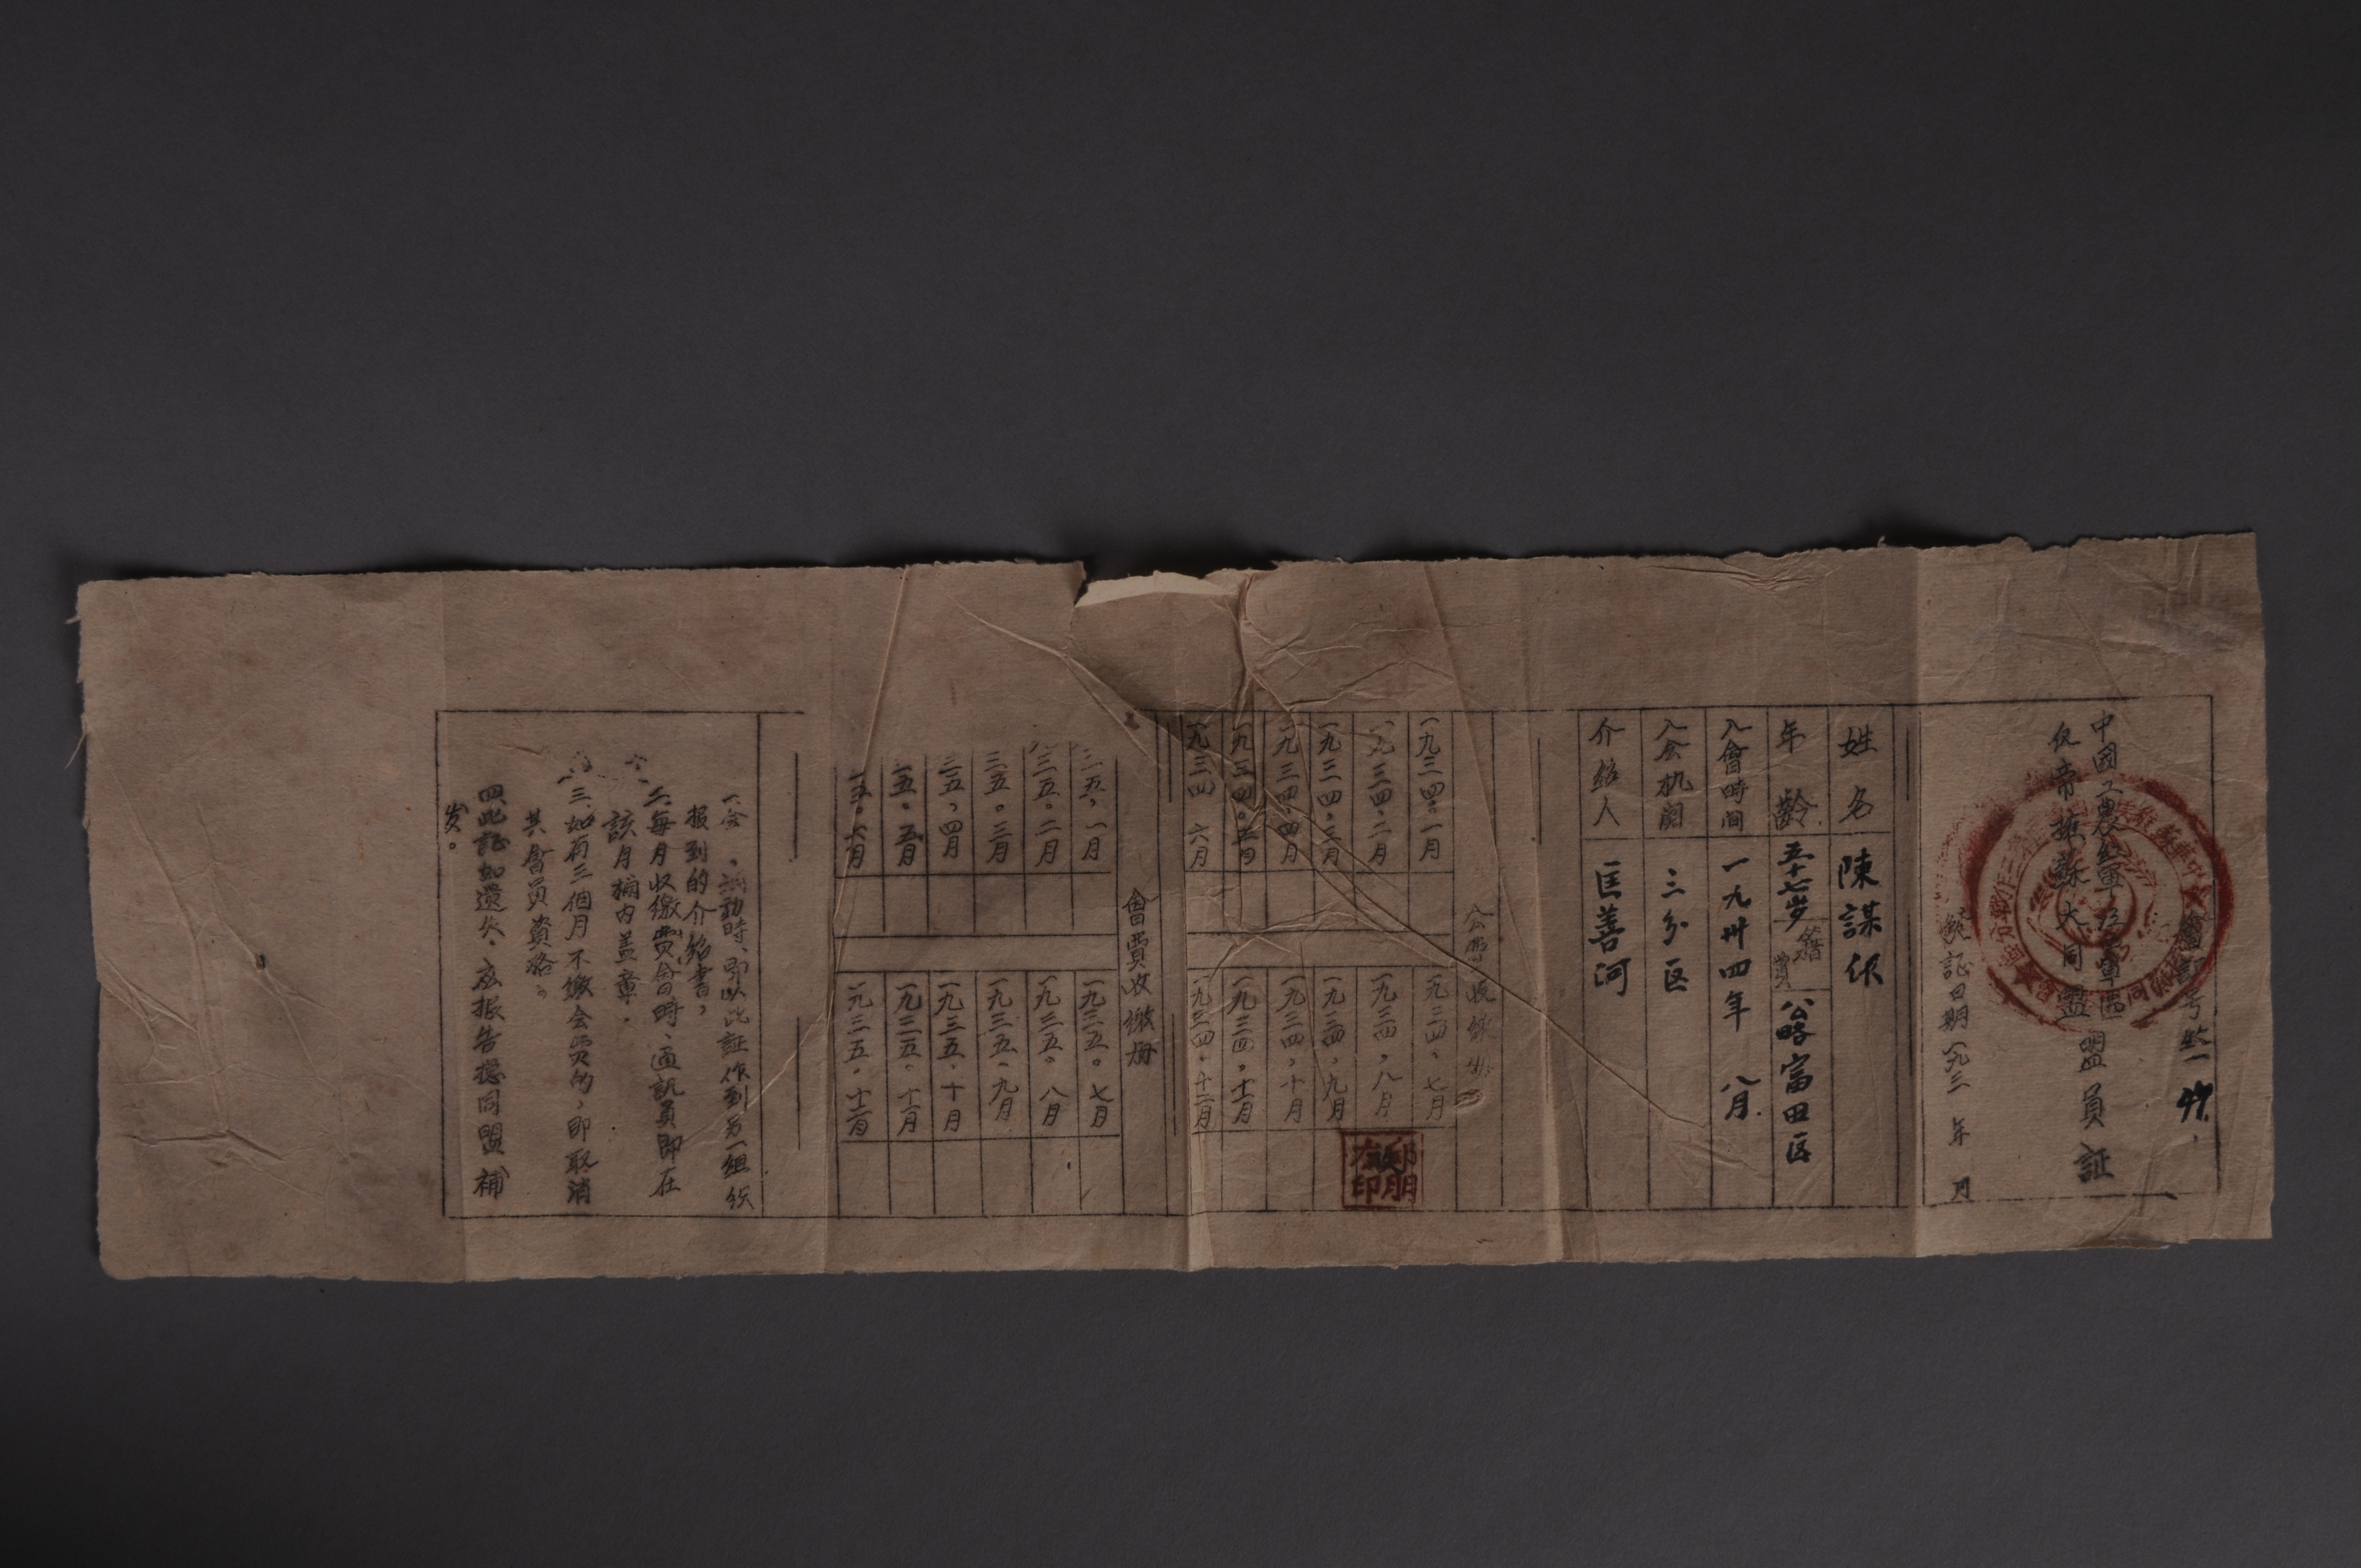 會証号 一 47.
中國工農紅軍 軍區
反帝擁蘇大同盟盟員証
証日期一九三 年 月
姓名 陳謀
年齡 五十七岁 籍貫 公略富田区
入會時间 一九卅四年 八月
入会机関 三分区
介绍人 匡善河
会費收缴册
一九三四。一月 一九三四,七月
一九三四,二月 一九三四,八月
一九三四,三月 一九三四,九月
一九三四,四月 一九三四,十月
一九三四。五月 一九三四,十一月
一九三四 六月 一九三四,十二月
會費收缴册
三五,一月 一九三五。七月
三五。二月 一九三五。八月
三五。三月 一九三五、九月
三五,四月 一九三五、十月
五。五月 一九三五。十一月
五。六月 一九三五。十二月
一、会 ,調動時、即以此証作到另一組织
报到的介绍書,
二、每月收繳費會時、通訊員即在
該月欄内盖章.
三、如有三個月不繳会费的,即取消
其會員資格。
四、此証如遺失、应报告总同盟補
发。
郵朋
印